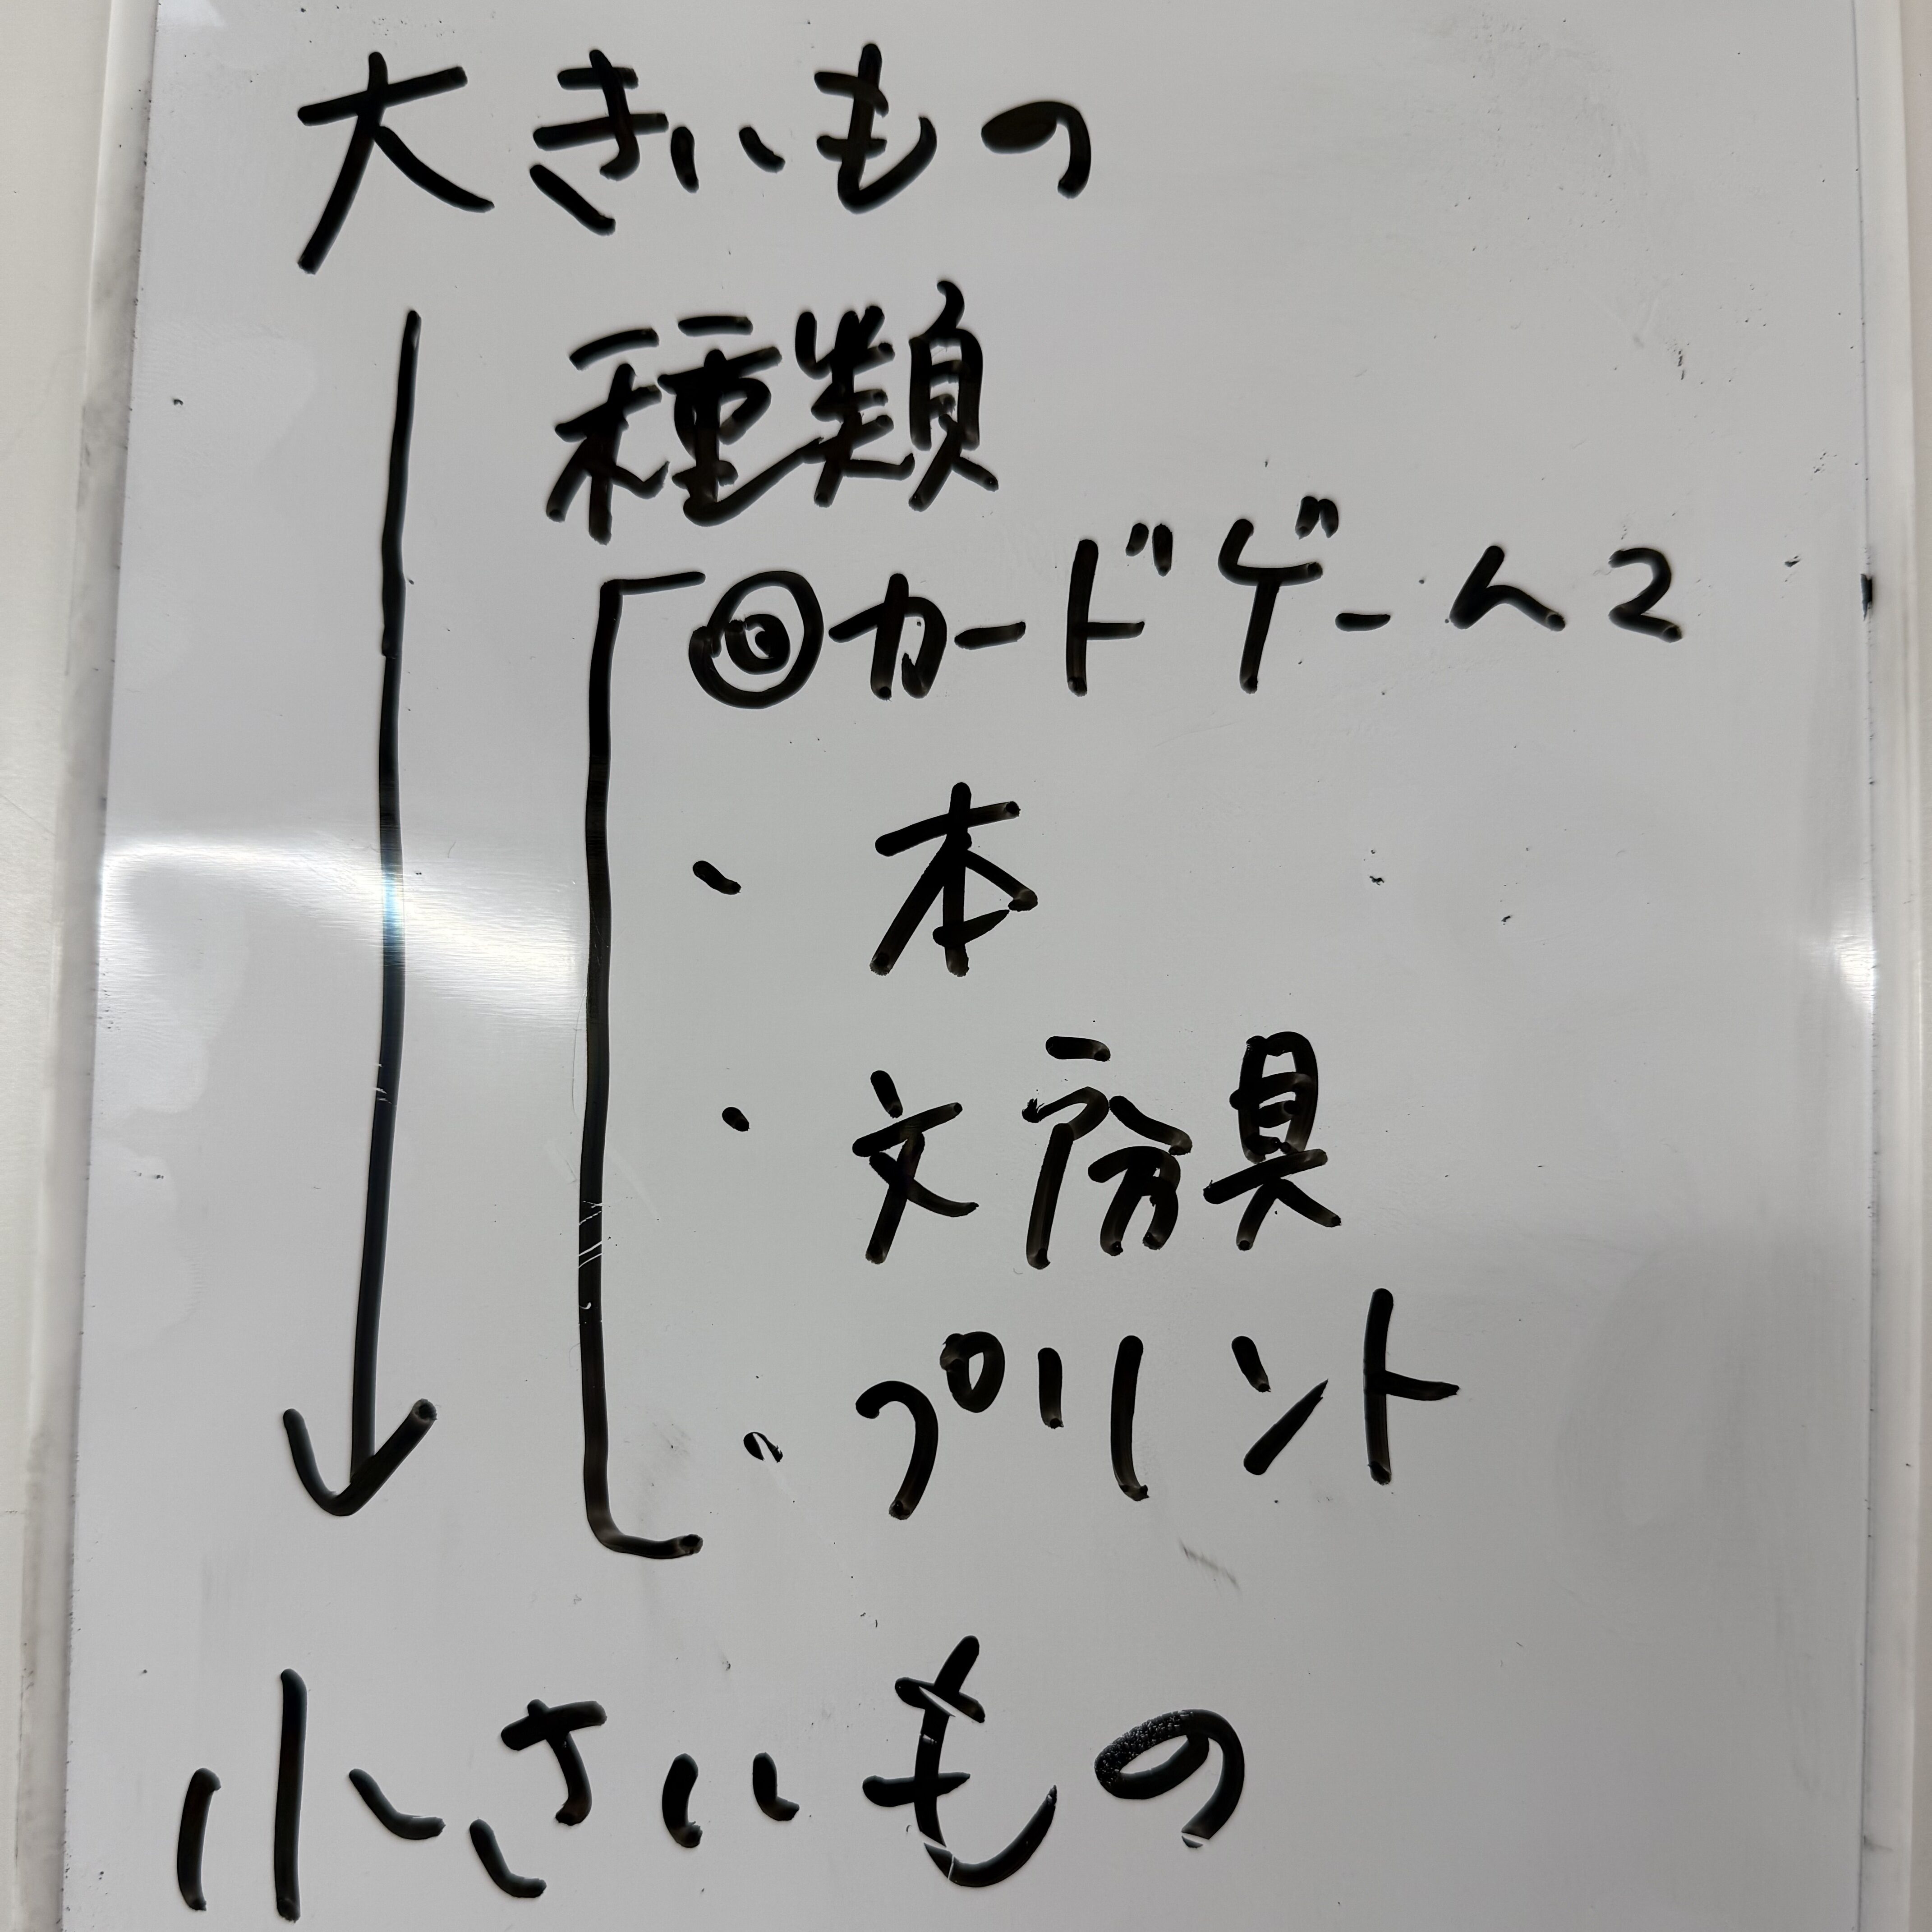 大きいもの
種類
◎カードゲーム2
・本
・文房具
・プリント
小さいもの